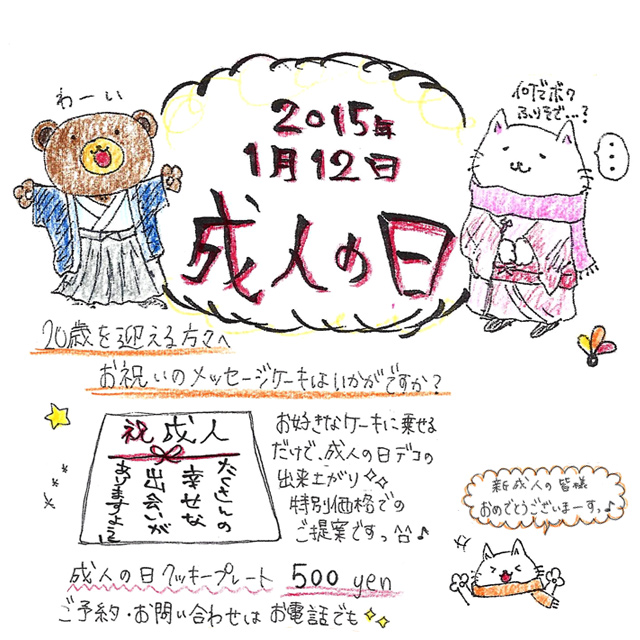 わーい
2015年
1月12日
成人の日
何でボク
ふりそで…?
…
20歳を迎える方々へ
お祝いのメッセージケーキはいかがですか?
祝成人
たくさんの
幸せな
出会いが
ありますように
お好きなケーキに乗せる
だけで、成人の日デコの
出来上がり✧✧
特別価格での
ご提案ですっ^^♪
新成人の皆様
おめでとうございまーすっ♪
成人の日クッキープレート 500yen
ご予約・お問い合わせはお電話でも✧✧